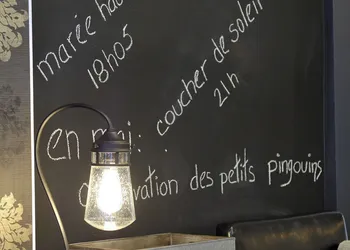 marée hau
18h05
coucher de soleil
21h
en mai:
vation des petits pingouins